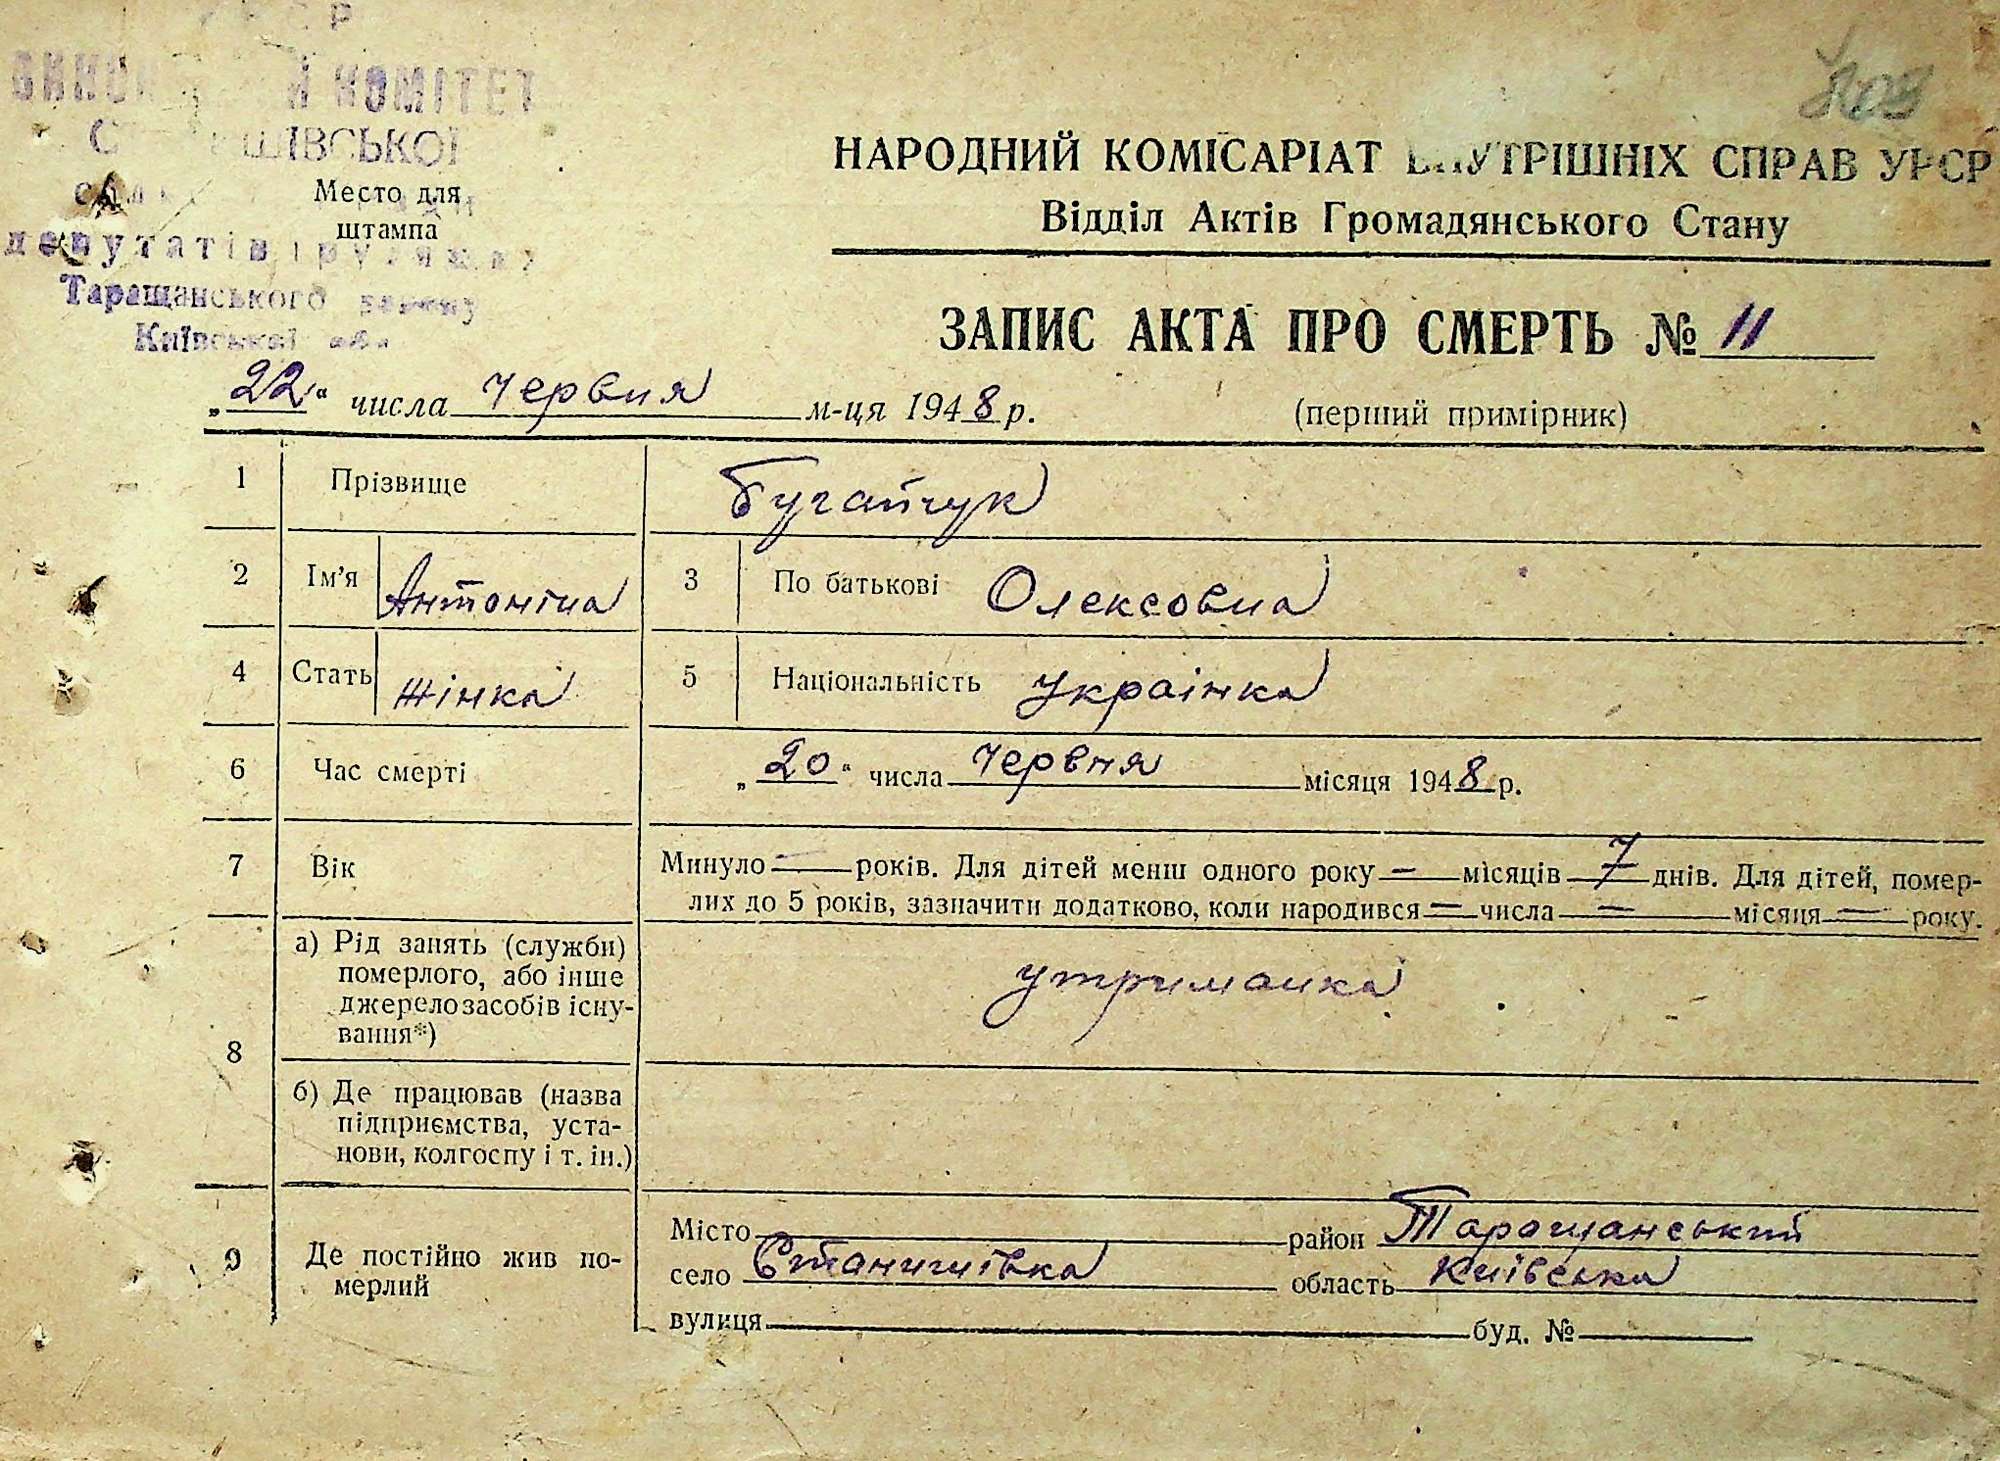 КОМІТЕТ
Таращанського
Київської
Место для
штампа
НАРОДНИЙ КОМІСАРІАТ ВНУТРІШНІХ СПРАВ УРСР
Відділ Актів Громадянського Стану
ЗАПИС АКТА ПРО СМЕРТЬ № 11
„22“ числа червня м-ця 1948 р. (перший примірник)
1 Прізвище Бугайчук
2 Ім'я Антоніна 3 По батькові Олексовна
4 Стать жінка 5 Національність українка
6 Час смерті „20“ числа червня місяця 1948 р.
7 Вік Минуло — років. Для дітей менш одного року — місяців 7 днів. Для дітей, помер-
лих до 5 років, зазначити додатково, коли народився — числа — місяця — року.
8 а) Рід занять (служби)
померлого, або інше
джерело засобів існу-
вання*)
утриманка
б) Де працював (назва
підприємства, уста-
нови, колгоспу і т. ін.)
9 Де постійно жив по-
мерлий
Місто район Таращанський
село Станишівка область Київська
вулиця буд. №